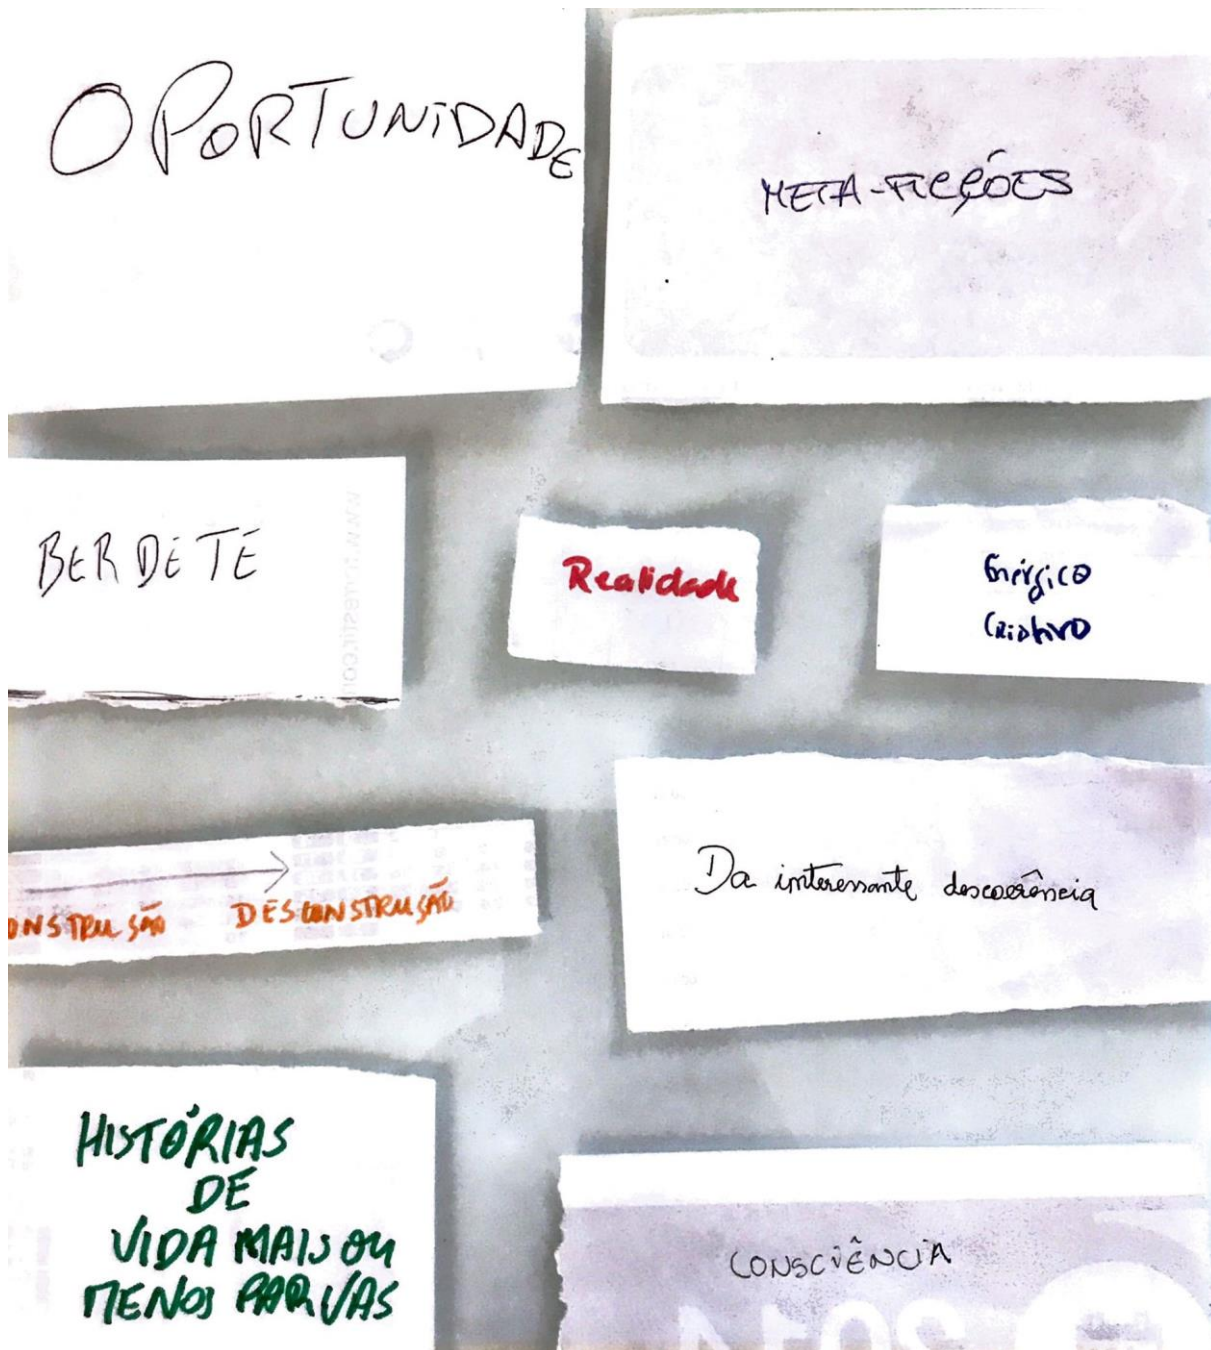 OPORTUNIDADE
META-FICÇÕES
BERDETE
Realidade
Enérgico
Criativo
ONSTRUSÃO DESCONSTRUSÃO
Da interessante descoerência
HISTÓRIAS
DE
VIDA MAIS OU
MENOS PARVAS
CONSCIÊNCIA